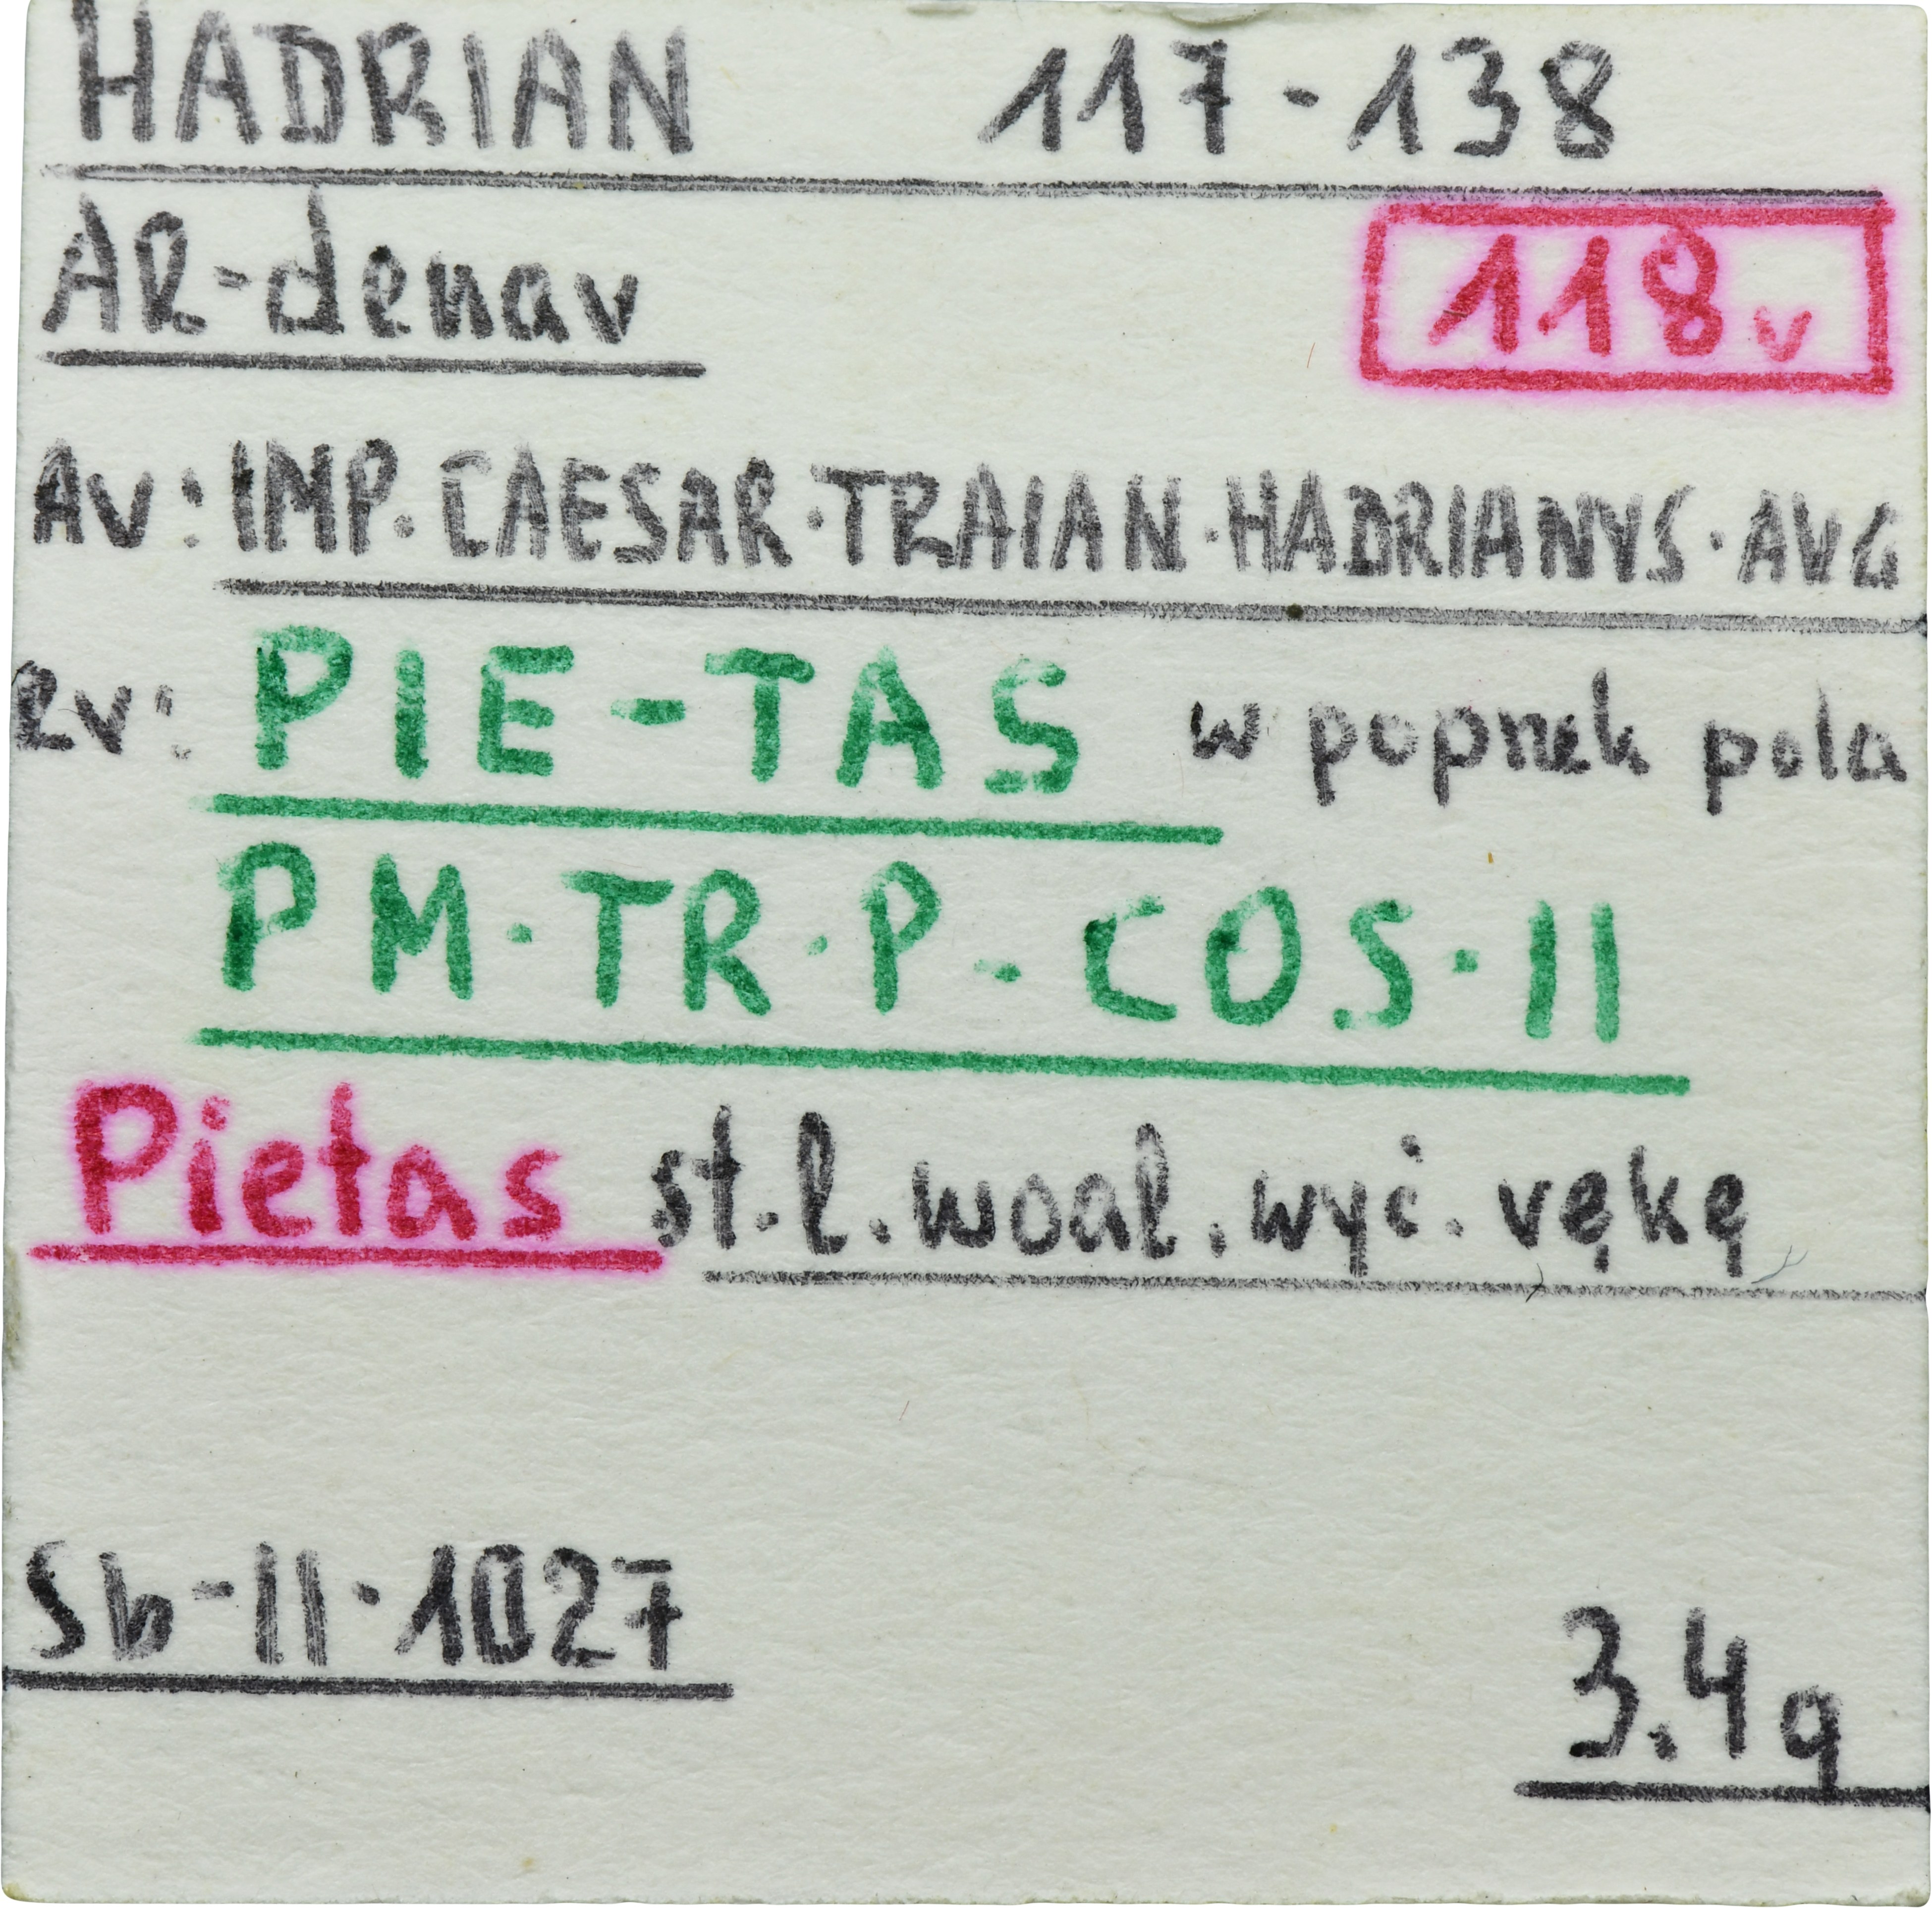 HADRIAN 117-138
AR-denar 118r
Av: IMP. CAESAR·TRAIAN·HADRIANVS·AVG
Rv: PIE-TAS w poprzek pola
PM·TR·P-·COS·II
Pietas st.l.woal.wyć.rękę
Sb-II·1027
3.4g